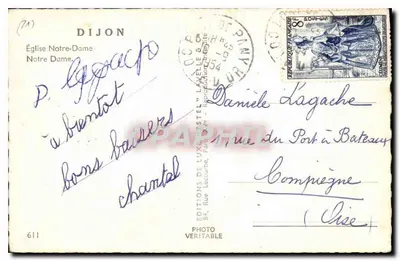 (21)
DIJON
Église Notre-Dame
Notre Dame
à bientôt
bons baisers
chantal
EDITIONS DE LUXE "ESTEL"
Danièle Lagache
rue du Port à Bateaux
Compiègne
(Oise)
PHOTO
VERITABLE
611